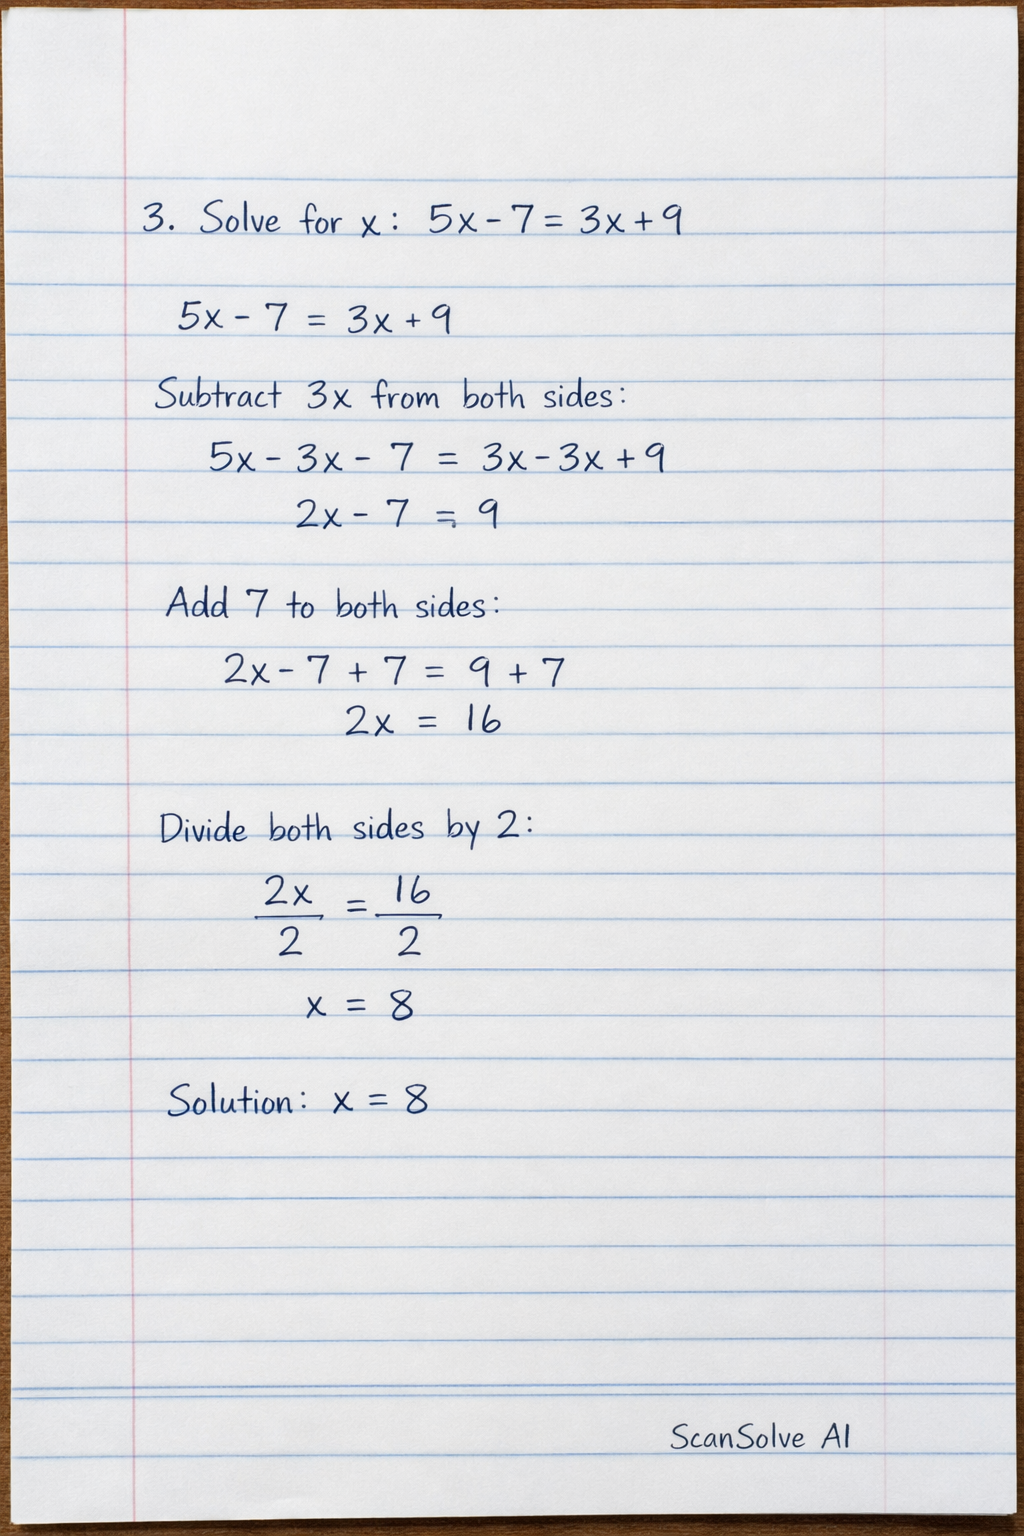 3. Solve for x: 5x - 7 = 3x + 9
5x - 7 = 3x + 9
Subtract 3x from both sides:
5x - 3x - 7 = 3x - 3x + 9
2x - 7 = 9
Add 7 to both sides:
2x - 7 + 7 = 9 + 7
2x = 16
Divide both sides by 2:
2x/2 = 16/2
x = 8
Solution: x = 8
ScanSolve AI